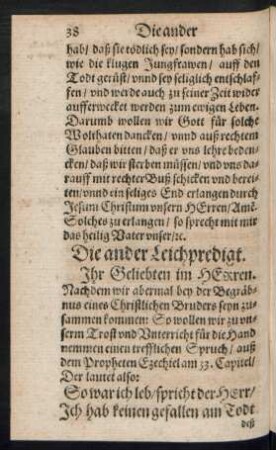 38 Die ander
hab/ daß sie tödlich sey/ sondern hab sich/
wie die klugen Jungfrawen/ auff den
Todt gerüst/ vnnd sey seliglich entschlaf-
fen/ vnd werde auch zu seiner Zeit wider
aufferwecket werden zum ewigen Leben.
Darumb wollen wir Gott für solche
Wolthaten dancken/ vnnd auß rechtem
Glauben bitten/ daß er vns lehre beden-
cken/ daß wir sterben müssen/ vnd vns da-
rauff mit rechter Buß schicken vnd berei-
ten/ vnnd ein seliges End erlangen durch
Jesum Christum vnsern HErren/ Amē.
Solches zu erlangen/ so sprecht mit mir
das heilig Vater vnser/ ꝛc.
Die ander Leichpredigt.
Ihr Geliebten im HErren.
Nachdem wir abermal bey der Begräb-
nus eines Christlichen Bruders seyn zu-
sammen kommen: So wollen wir zu vn-
serm Trost vnd Vnterricht für die Hand
nemmen einen trefflichen Spruch/ auß
dem Propheten Ezechiel am 33. Capitel/
Der lautet also:
So war ich leb/ spricht der HErr/
Ich hab keinen gefallen am Todt
deß